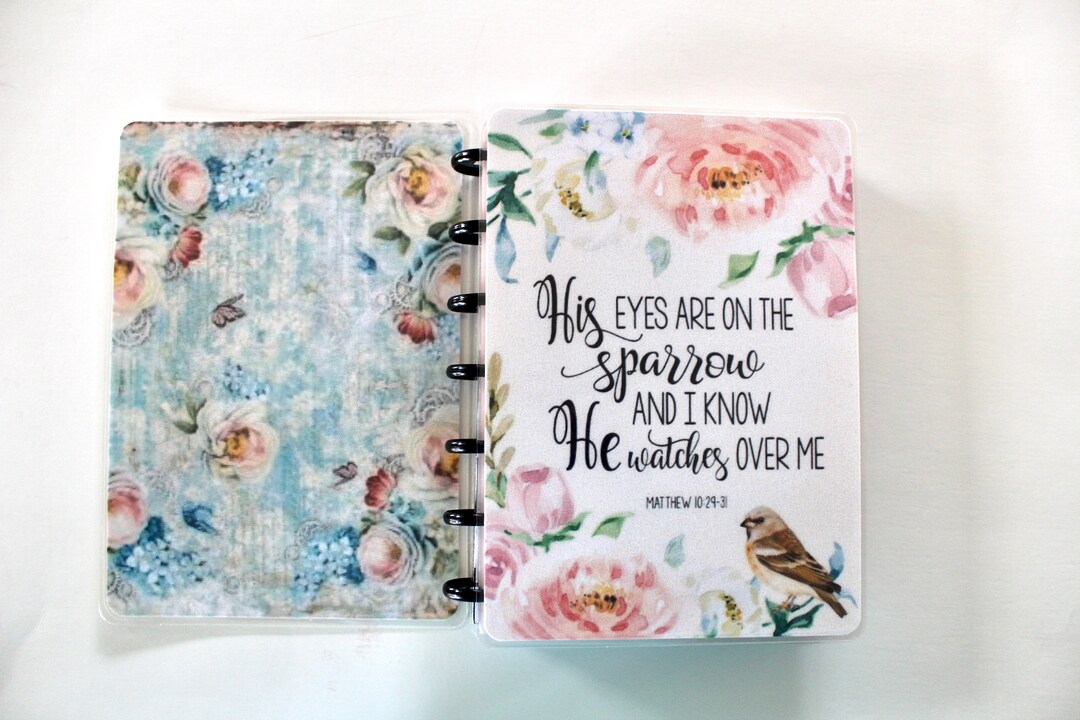 His EYES ARE ON THE
sparrow
AND I KNOW
He watches OVER ME
MATTHEW 10:29-31